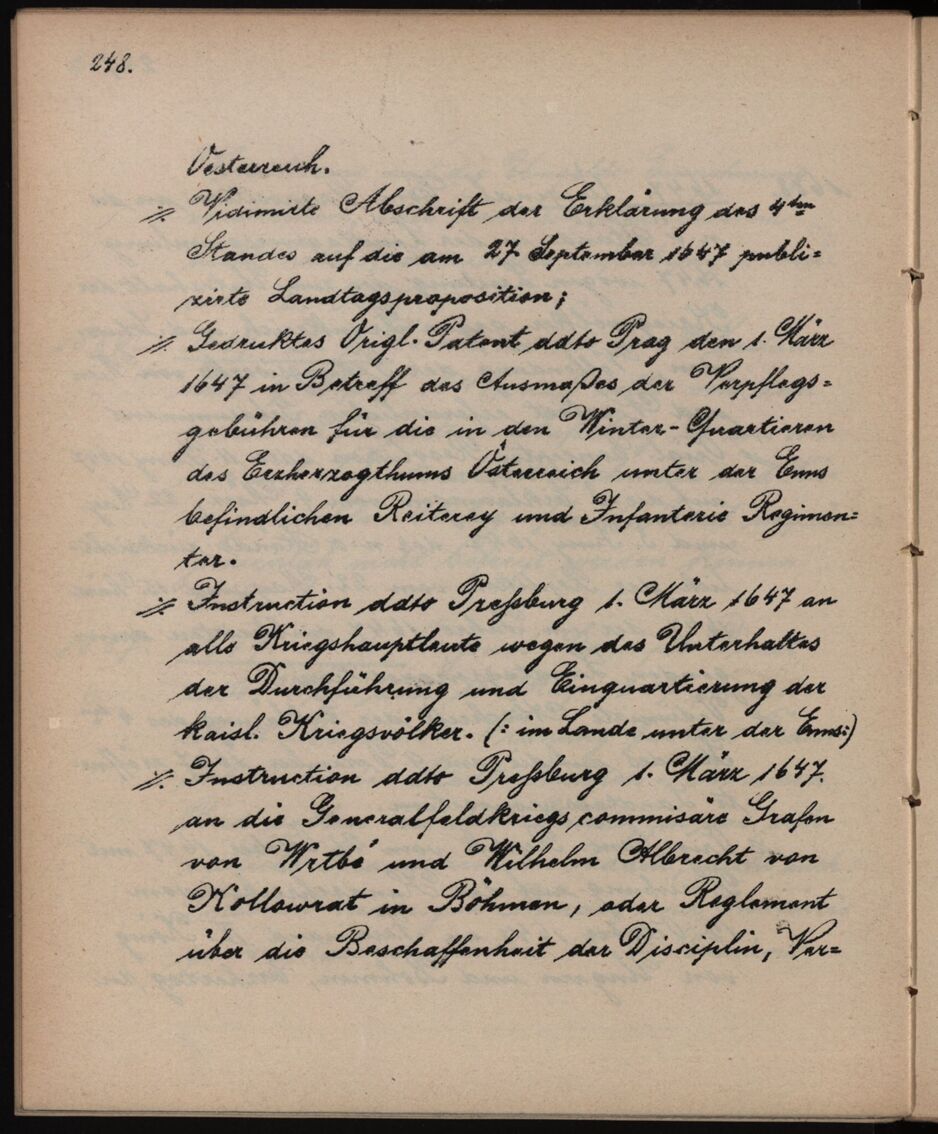 248.
Oesterreich.
//. Vidimirte Abschrift der Erklärung des 4ten
Standes auf die am 27 September 1647 publi=
zirte Landtagsproposition;
//. Gedruktes Origl. Patent ddto Prag den 1. März
1647 in Betreff des Ausmaßes der Verpflegs=
gebühren für die in den Winter-Quartieren
des Erzherzogthums Österreich unter der Enns
befindlichen Reiterey und Infanterie Regimen=
ter.
//. Instruction ddto Preßburg 1. März 1647 an
alle Kriegshauptleute wegen des Unterhaltes
der Durchführung und Einquartierung der
kaisl. Kriegsvölker. (: im Lande unter der Enns:)
//. Instruction ddto Preßburg 1. März 1647.
an die Generalfeldkriegscommisäre Grafen
von Wrtbé und Wilhelm Albrecht von
Kollowrat in Böhmen, oder Reglement
über die Beschaffenheit der Disciplin, Ver=